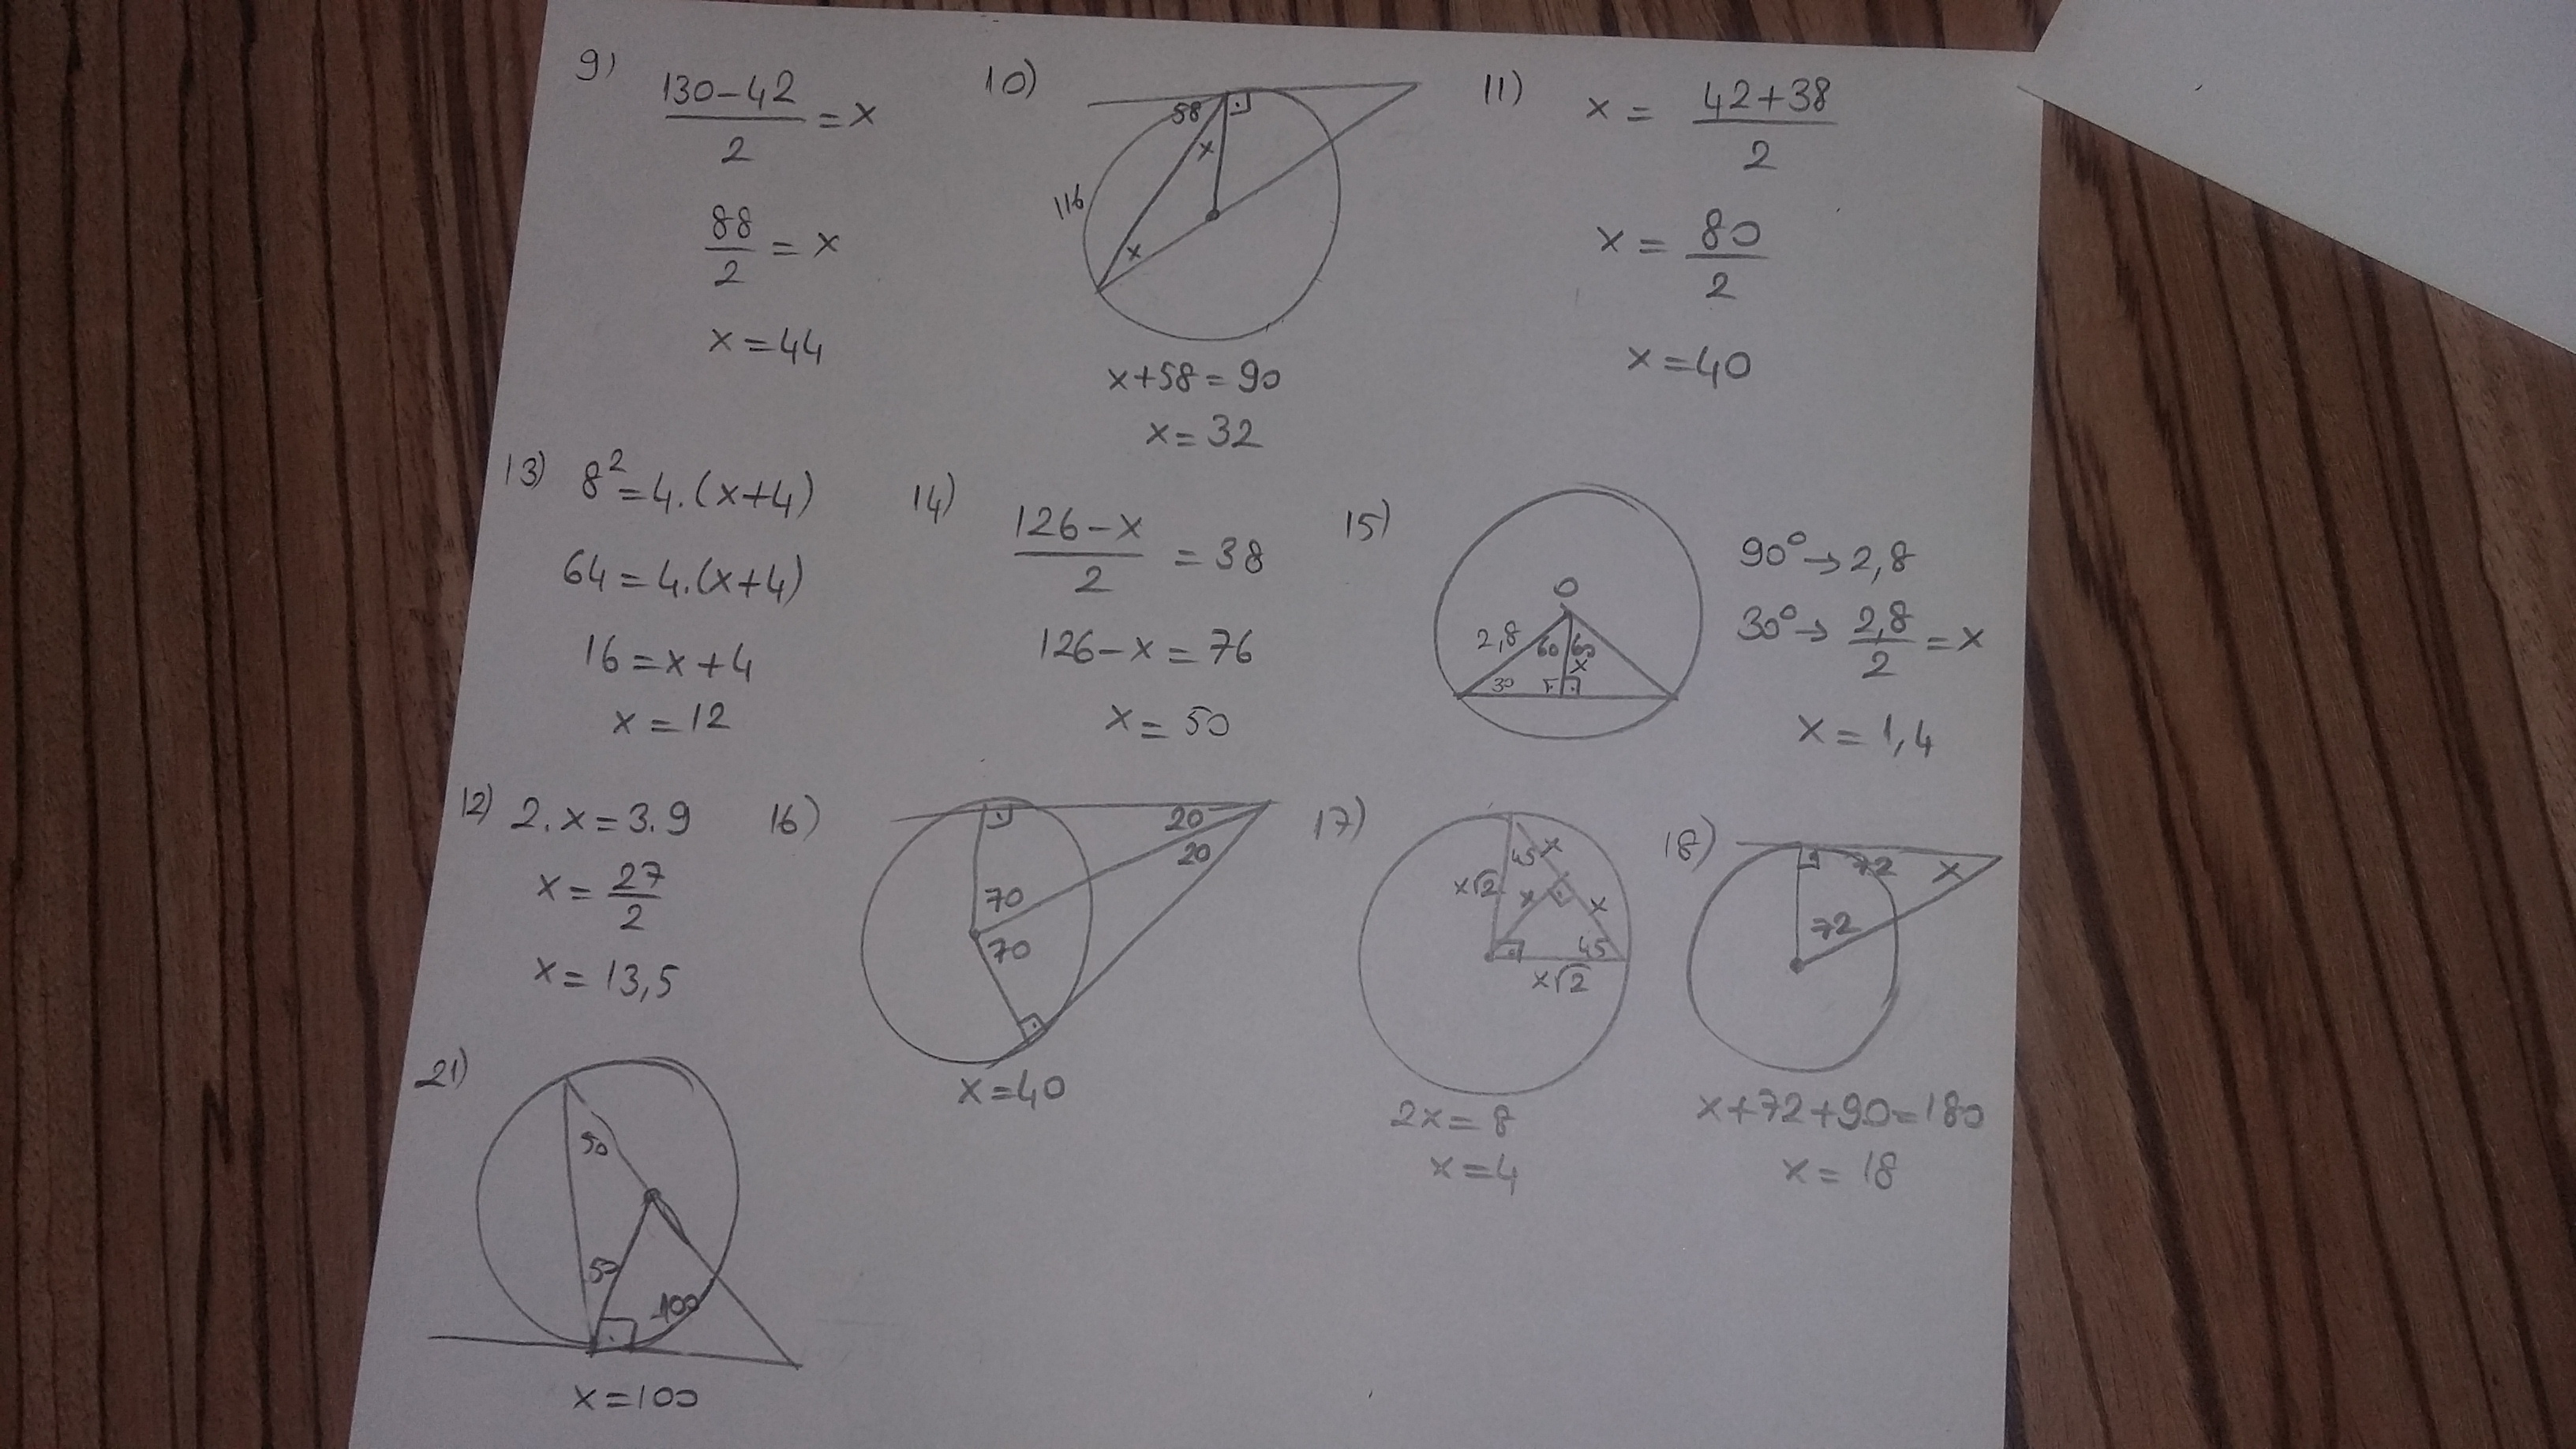 9)
130-42
2
=x
88
2
=x
x=44
10)
58
x
116
x
x+58=90
x=32
11)
x= 42+38
2
x= 80
2
x=40
13) 8²=4.(x+4)
64=4.(x+4)
16=x+4
x=12
14)
126-x
2
=38
126-x=76
x=50
15)
O
2,8 60 60
x
30
90°→2,8
30°→ 2,8
2
=x
x=1,4
12) 2.x=3.9
x= 27
2
x=13,5
16)
20
20
70
70
x=40
17)
45 x
x√2 x x
45
x√2
2x=8
x=4
18)
72 x
72
x+72+90=180
x=18
21)
50
50
100
x=100